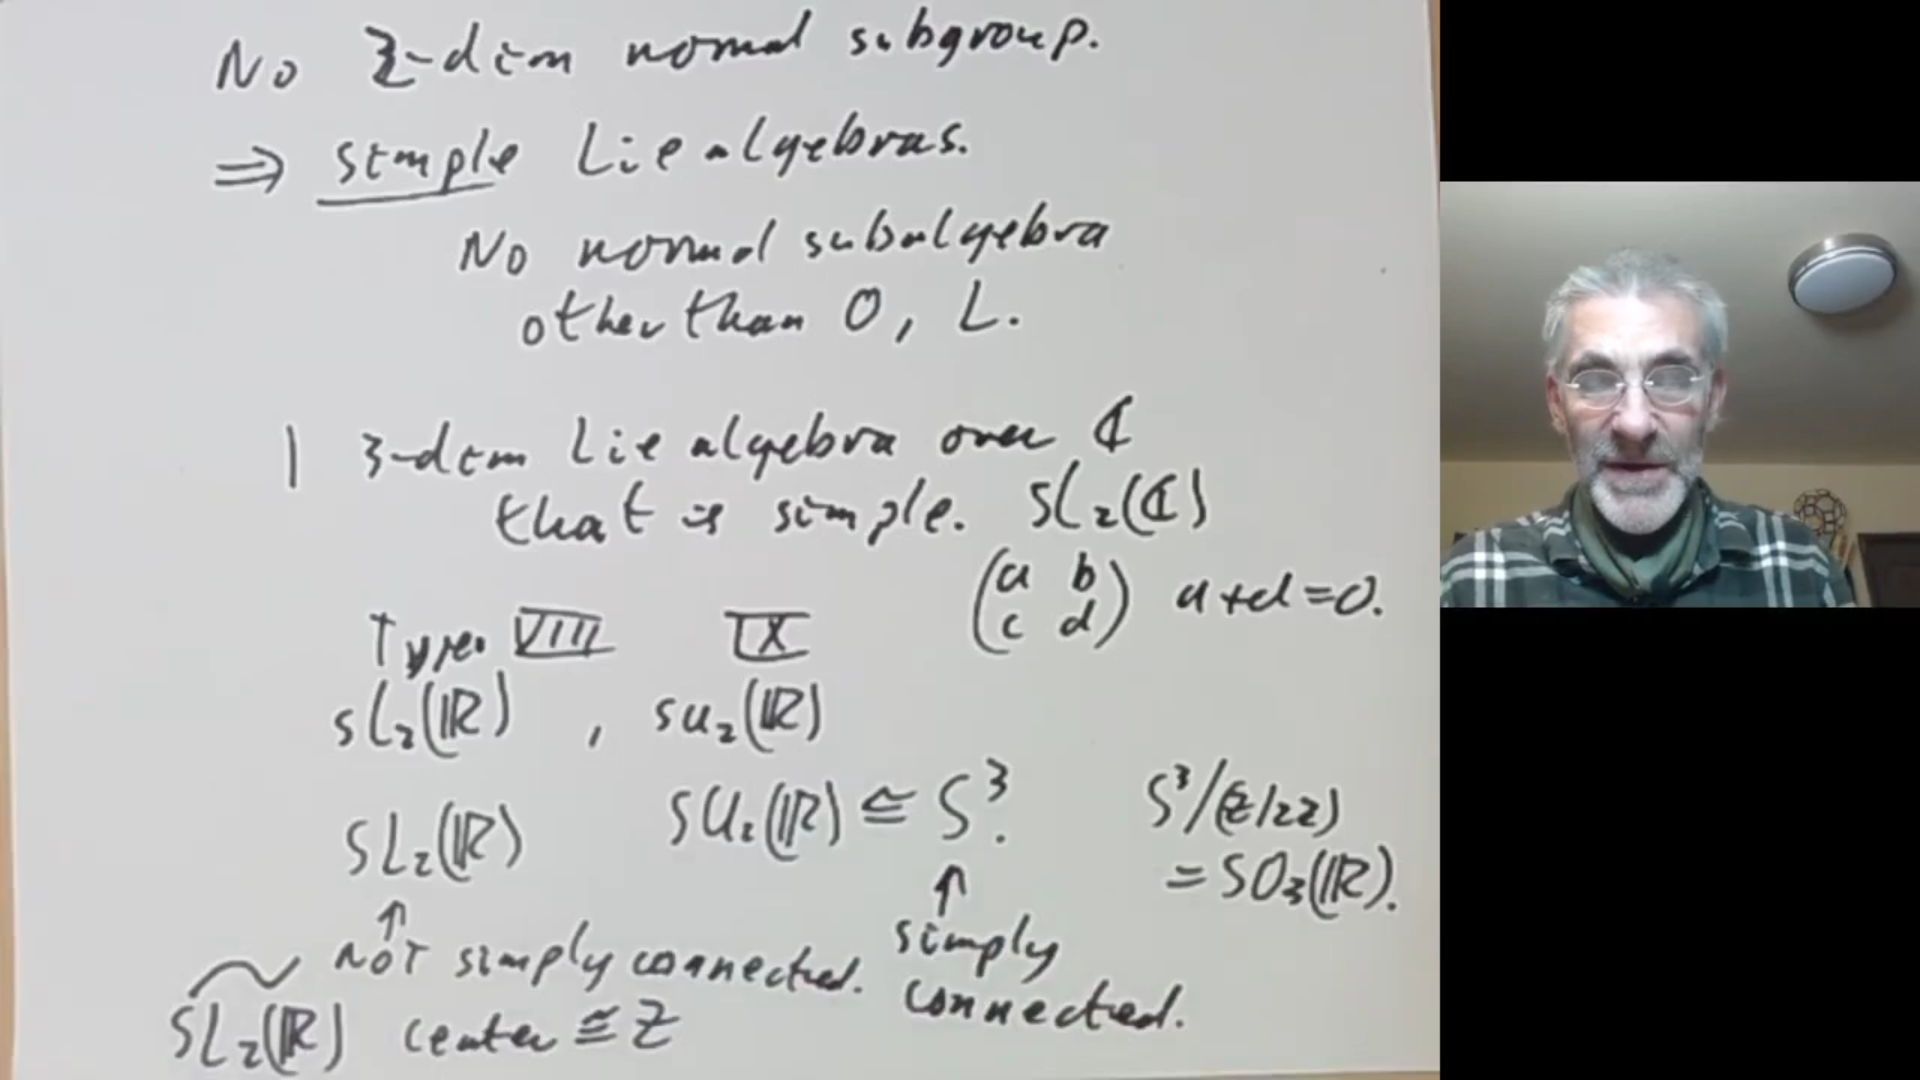 No 2-dim normal subgroup.
⇒ simple Lie algebras.
No normal subalgebra
other than 0, L.
1 3-dim Lie algebra over ℂ
that is simple. SL₂(ℂ)
(a b
c d) a+d=0.
Types VIII IX
sl₂(ℝ) , su₂(ℝ)
SL₂(ℝ) SU₂(ℝ) ≅ S³. S³/(Z/2Z)
= SO₃(ℝ).
↑ NOT simply connected. ↑ simply
connected.
S͠L₂(ℝ) center ≅ Z